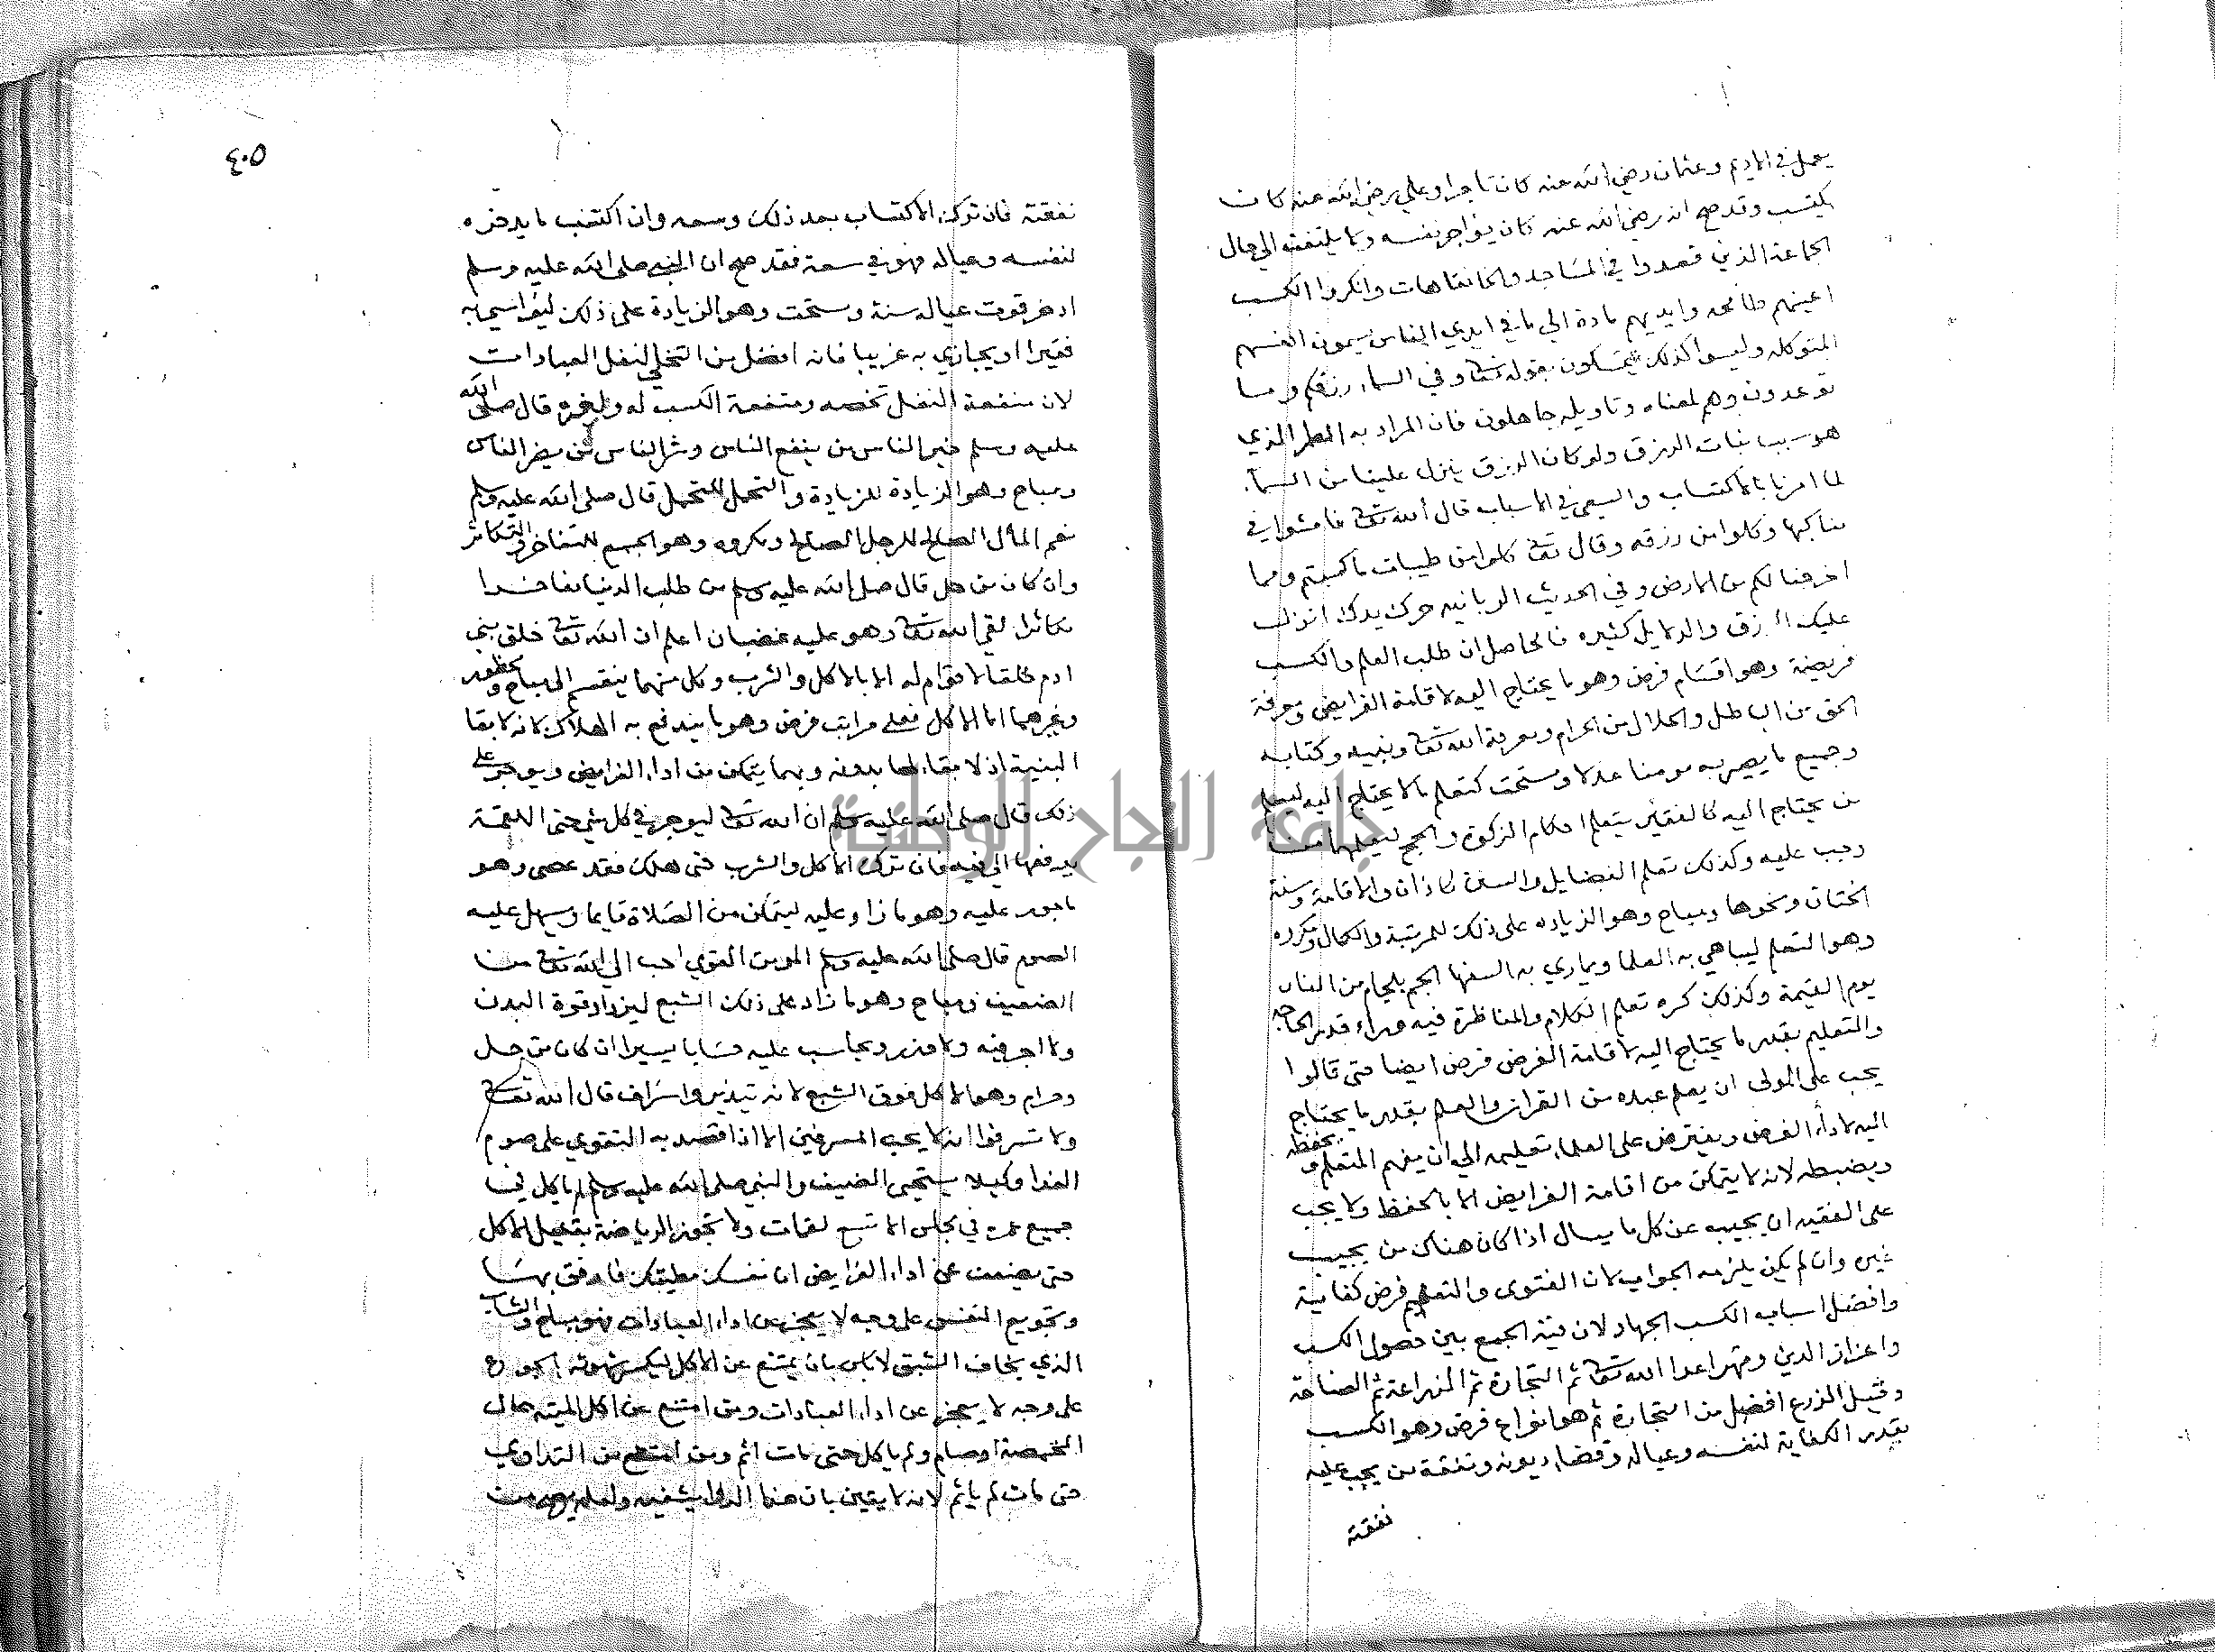 يعمل في الاديم وعثمان رضي الله عنه كان تاجرا وعلي رضي الله عنه كان
يكتسب وقد صح انه رضي الله عنه كان يؤاجر نفسه ولا يلتفت الي حال
الجماعة الذين قعدوا في المساجد والخانقاهات وانكروا الكسب
اعينهم طامحه وايديهم مادة الي ما في ايدي الناس يسمون انفسهم
المتوكله وليسوا كذلك يتمسكون بقوله تعالى وفي السماء رزقكم وما
توعدون وهم لمعناه وتاويله جاهلون فان المراد به المطر الذي
هو سبب نبات الرزق ولو كان الرزق ينزل علينا من السماء
لما امرنا بالاكتساب والسعي في الاسباب قال الله تعالى فامشوا في
مناكبها وكلوا من رزقه وقال تعالى كلوا من طيبات ما كسبتم ومما
اخرجنا لكم من الارض وفي الحديث الربانيه حرك يدك انزل
عليك الرزق والدلايل كثيره فالحاصل ان طلب العلم والكسب
فريضة وهو اقسام فرض وهو ما يحتاج اليه لاقامة الفرايض ومعرفة
الحق من الباطل والحلال من الحرام ومعرفة الله تعالى ونبيه وكتابه
وجميع ما يصير به مومنا عدلا ومستحب كتعلم ما لا يحتاج اليه ليعلم
من يحتاج اليه كالفقير يتعلم احكام الزكوة والحج ليعلمها من
وجب عليه وكذلك تعلم الفضايل والسنن كاذان والاقامة وسنة
الختان ونحوها ومباح وهو الزياده على ذلك للمرتبة والكمال ومكروه
وهو التعلم ليباهي به العلما ويماري به السفها الجم بلجام من النار
يوم القيمة وكذلك كره تعلم الكلام والمناظرة فيه وراء قدر الحاجه
والتعليم بقدر ما يحتاج اليه لاقامة الفرض فرض ايضا حتى قالوا
يجب على المولى ان يعلم عبده من القران والعلم بقدر ما يحتاج
اليه لاداء الفرض ويفترض على العلماء تعليمه الي ان يفهم المتعلم ويحفظه
ويضبطه لانه لا يتمكن من اقامة الفرايض الا بالحفظ ولا يجب
على الفقيه ان يجيب عن كل ما يسال اذا كان هناك من يجيب
غيره وان لم يكن يلزمه الجواب لان الفتوى والتعليم فرض كفاية
وافضل اسباب الكسب الجهاد لان فيه الجمع بين حصول الكسب
واعزاز الدين وقهر اعدا الله تعالى ثم التجارة ثم الزراعة ثم الصناعة
وقيل الزرع افضل من التجارة ثم هو انواع فرض وهو الكسب
بقدر الكفاية لنفسه وعياله وقضاء ديونه ونفقة من يجب عليه
نفقة
٤٠٥
نفقته فان ترك الاكتساب بعد ذلك وسعه وان اكتسب ما يدخره
لنفسه وعياله فهو في سعة فقد صح ان النبي صلى الله عليه وسلم
ادخر قوت عياله سنة ومستحب وهو الزيادة على ذلك ليؤاسي به
فقيرا او يجازي به غريبا فانه افضل من التخلي لنفل العبادات
لان منفعة النفل تخصه ومنفعة الكسب له ولغيره قال صلى الله
عليه وسلم خير الناس من ينفع الناس وشر الناس من يضر الناس
ومباح وهو الزيادة للزيادة والتجمل قال صلى الله عليه وسلم
نعم المال الصالح للرجل الصالح ومكروه وهو الجمع للتفاخر والتكاثر
وان كان من حل قال صلى الله عليه وسلم من طلب الدنيا مفاخرا
مكاثرا لقي الله تعالى وهو عليه غضبان اعلم ان الله تعالى خلق بني
ادم خلقا لا قوام له الا بالاكل والشرب وكل منهما ينقسم الى مباح ومحظور
وغيرهما اما الاكل فعلى مراتب فرض وهو ما يندفع به الهلاك لانه لابقا
البنية اذ لا بقاء لها بدونه وبها يتمكن من اداء الفرايض ويوجر على
ذلك قال صلى الله عليه وسلم ان الله تعالى ليوجر في كل شي حتى اللقمة
يرفعها الي فيه فان ترك الاكل والشرب حتى هلك فقد عصى وهو
ماجور عليه وهو ما زاد عليه ليتمكن من الصلاة قايما ويسهل عليه
الصوم قال صلى الله عليه وسلم المومن القوي احب الي الله تعالى من
الضعيف ومباح وهو ما زاد على ذلك الشبع ليزداد قوة البدن
ولا اجر فيه ولا وزر ويحاسب عليه حسابا يسيرا ان كان من حل
وحرام وهو الاكل فوق الشبع لانه تبذير واسراف قال الله تعالى
ولا تسرفوا انه لا يحب المسرفين الا اذا قصد به التقوي على صوم
الغدا وكيلا يستحيى الضيف والنبي صلى الله عليه وسلم لم ياكل في
جميع عمره في مجلس الا تسع لقمات ولا تجوز الرياضة بتقليل الاكل
حتى يضعف عن اداء الفرايض ان نفسك مطيتك فارفق بها
وتجويع النفس على وجه لا يعجز عن اداء العبادات فهو مباح والشاب
الذي يخاف الشبق لا باس بان يمتنع عن الاكل ليكسر شهوته بالجوع
على وجه لا يعجز عن اداء العبادات ومن امتنع عن اكل الميته حال
المخمصة او صام ولم ياكل حتى مات اثم ومن امتنع من التداوي
حتى مات لم ياثم لانه لا يتيقن بان هذا الدواء يشفيه ولعله يصح من
جامعة النجاح الوطنية